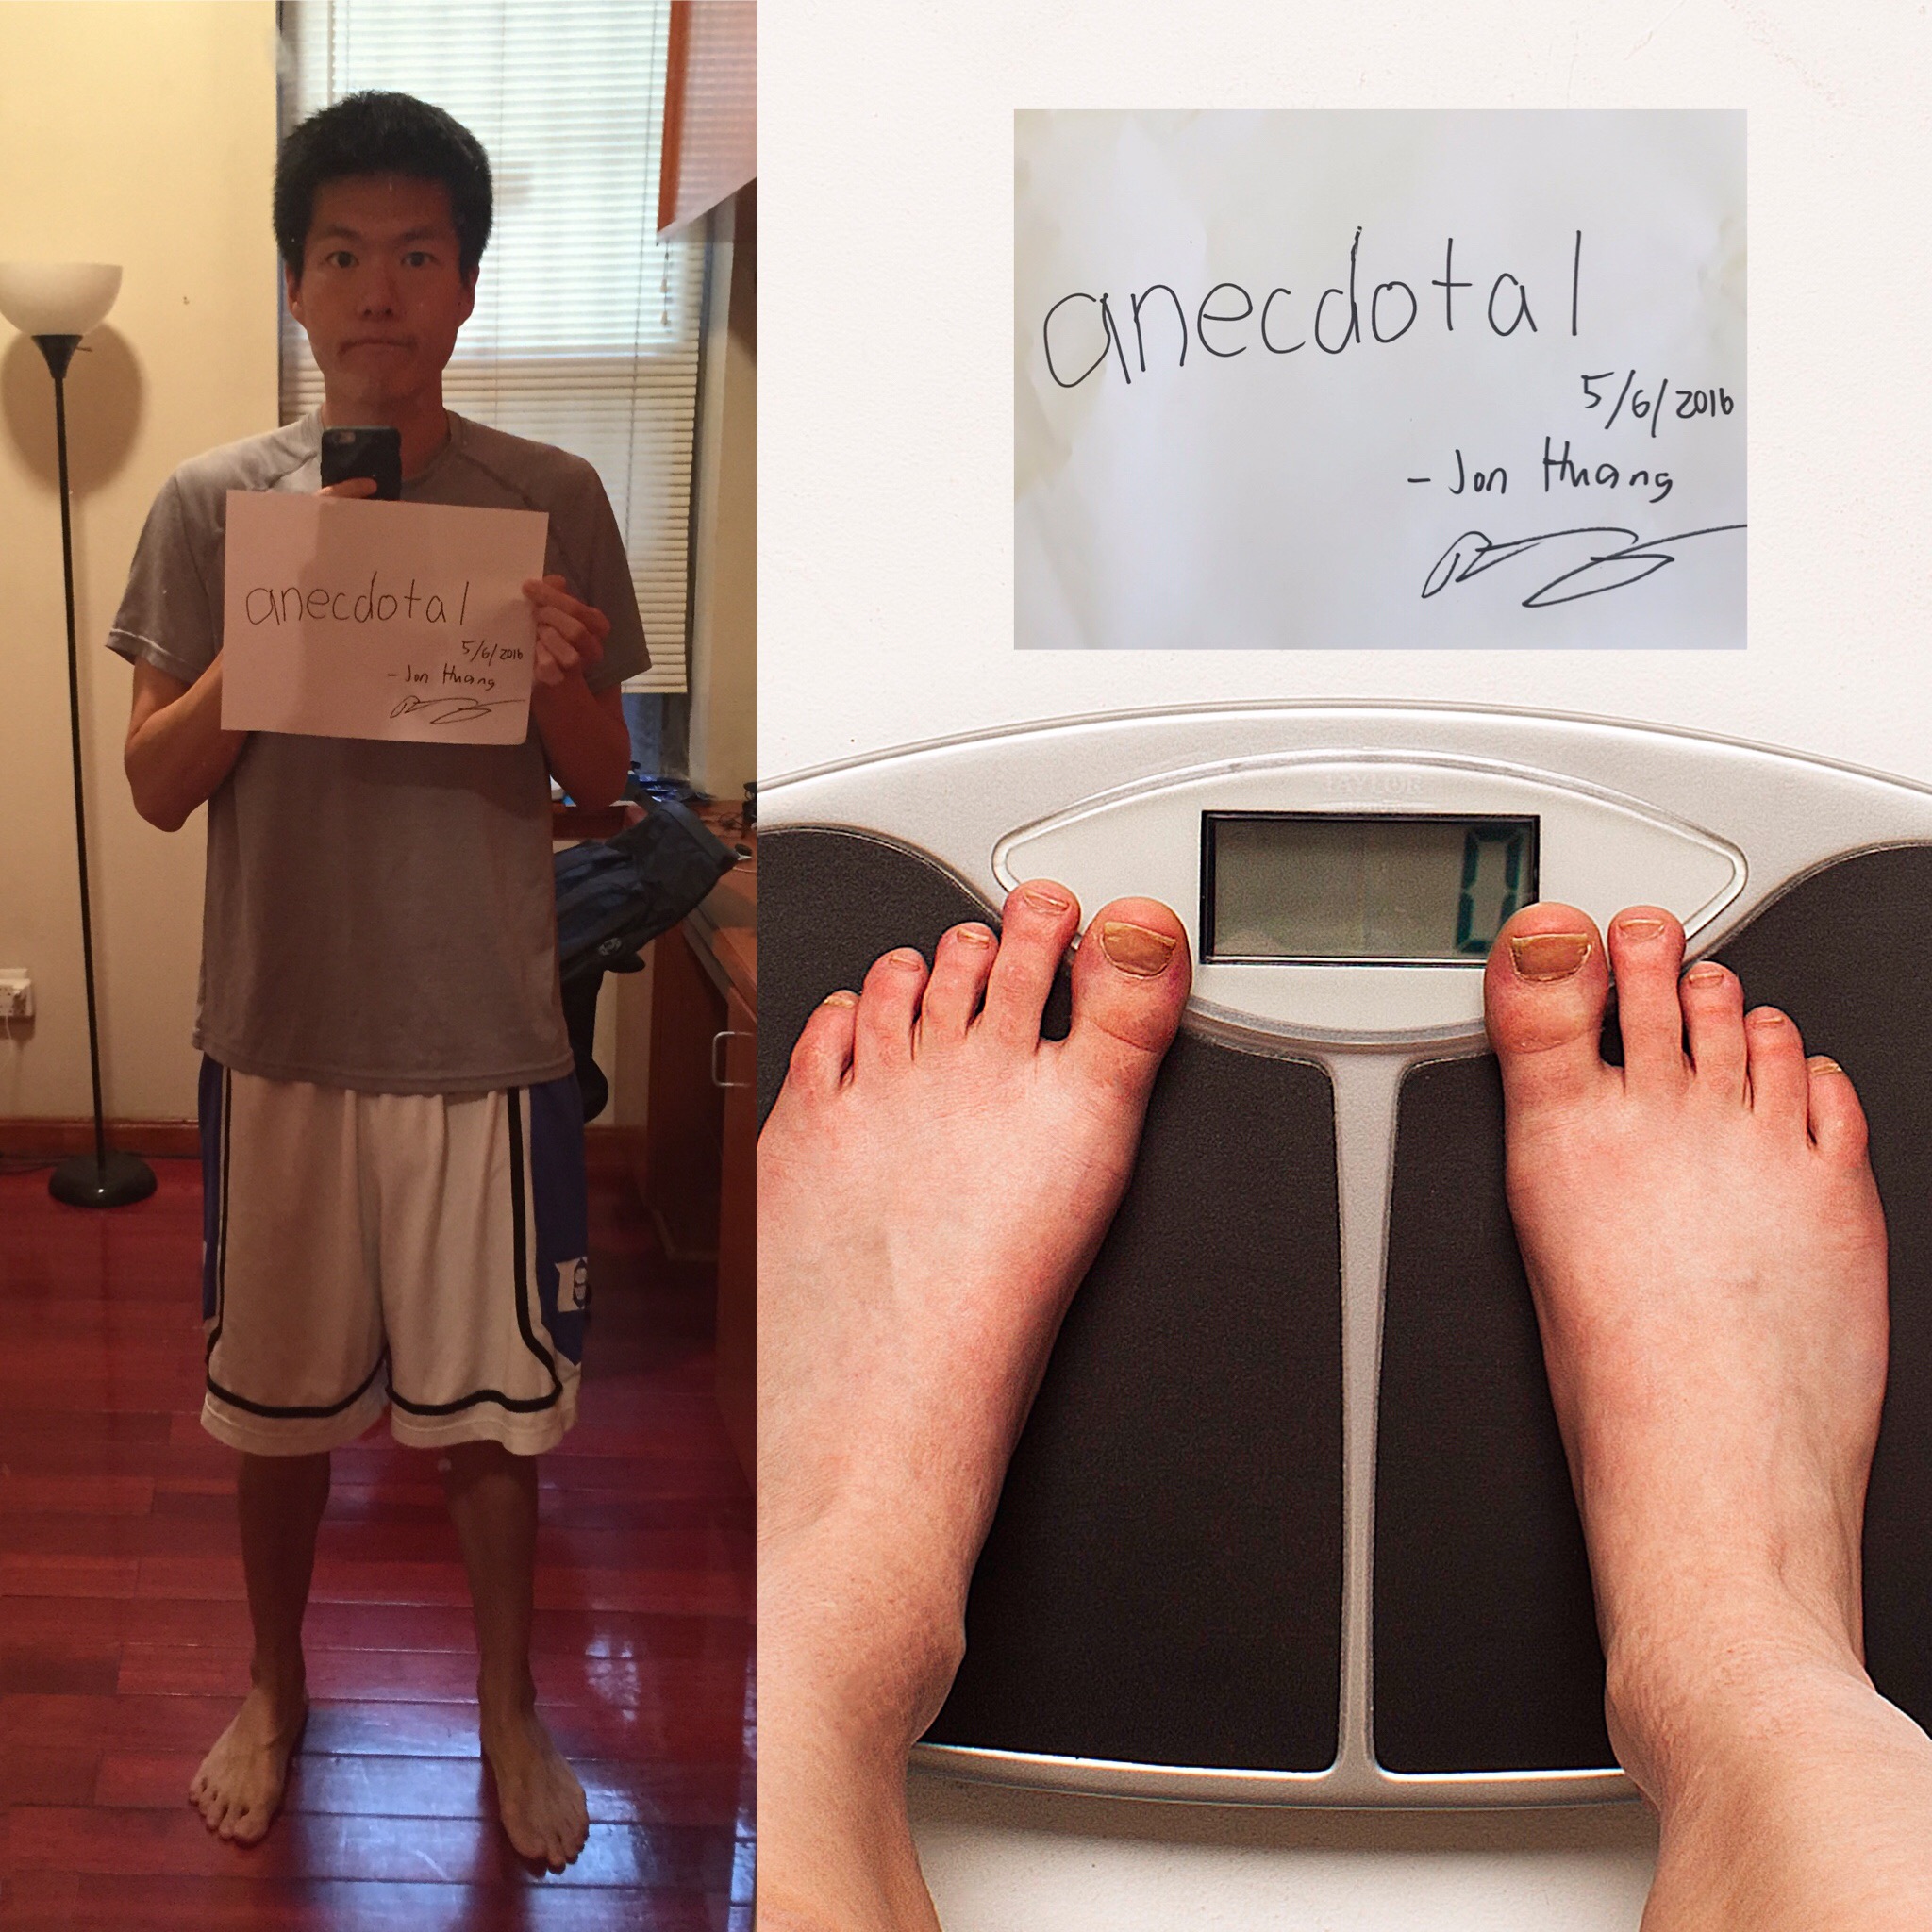 anecdotal
5/6/2016
- Jon Huang
anecdotal
5/6/2016
- Jon Huang
TAYLOR
0